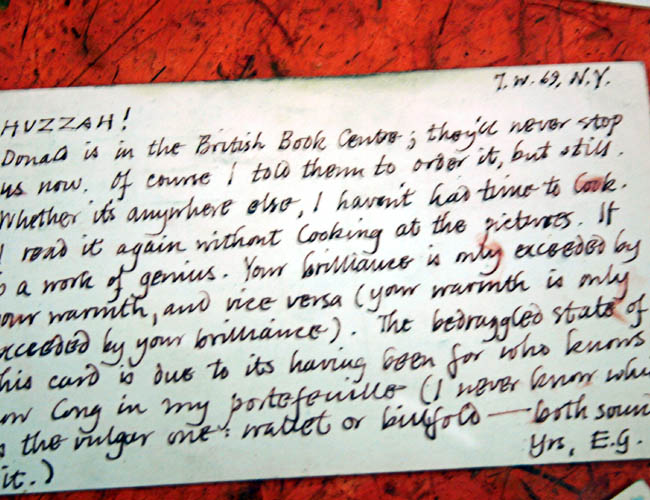 7. IV. 69, N.Y.
HUZZAH!
Donald is in the British Book Centre; they'll never stop
us now. Of course I told them to order it, but still.
Whether it's anywhere else, I haven't had time to look.
I read it again without looking at the pictures. It
is a work of genius. Your brilliance is only exceeded by
your warmth, and vice versa (your warmth is only
exceeded by your brilliance). The bedraggled state of
this card is due to its having been for who knows
how long in my portefeuille (I never know whi
is the vulgar one: wallet or billfold — both soun
it.)
Yrs, E.G.